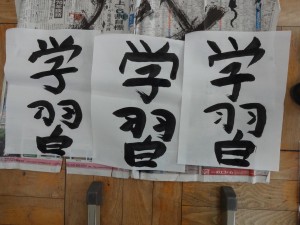 学習
学習
学習